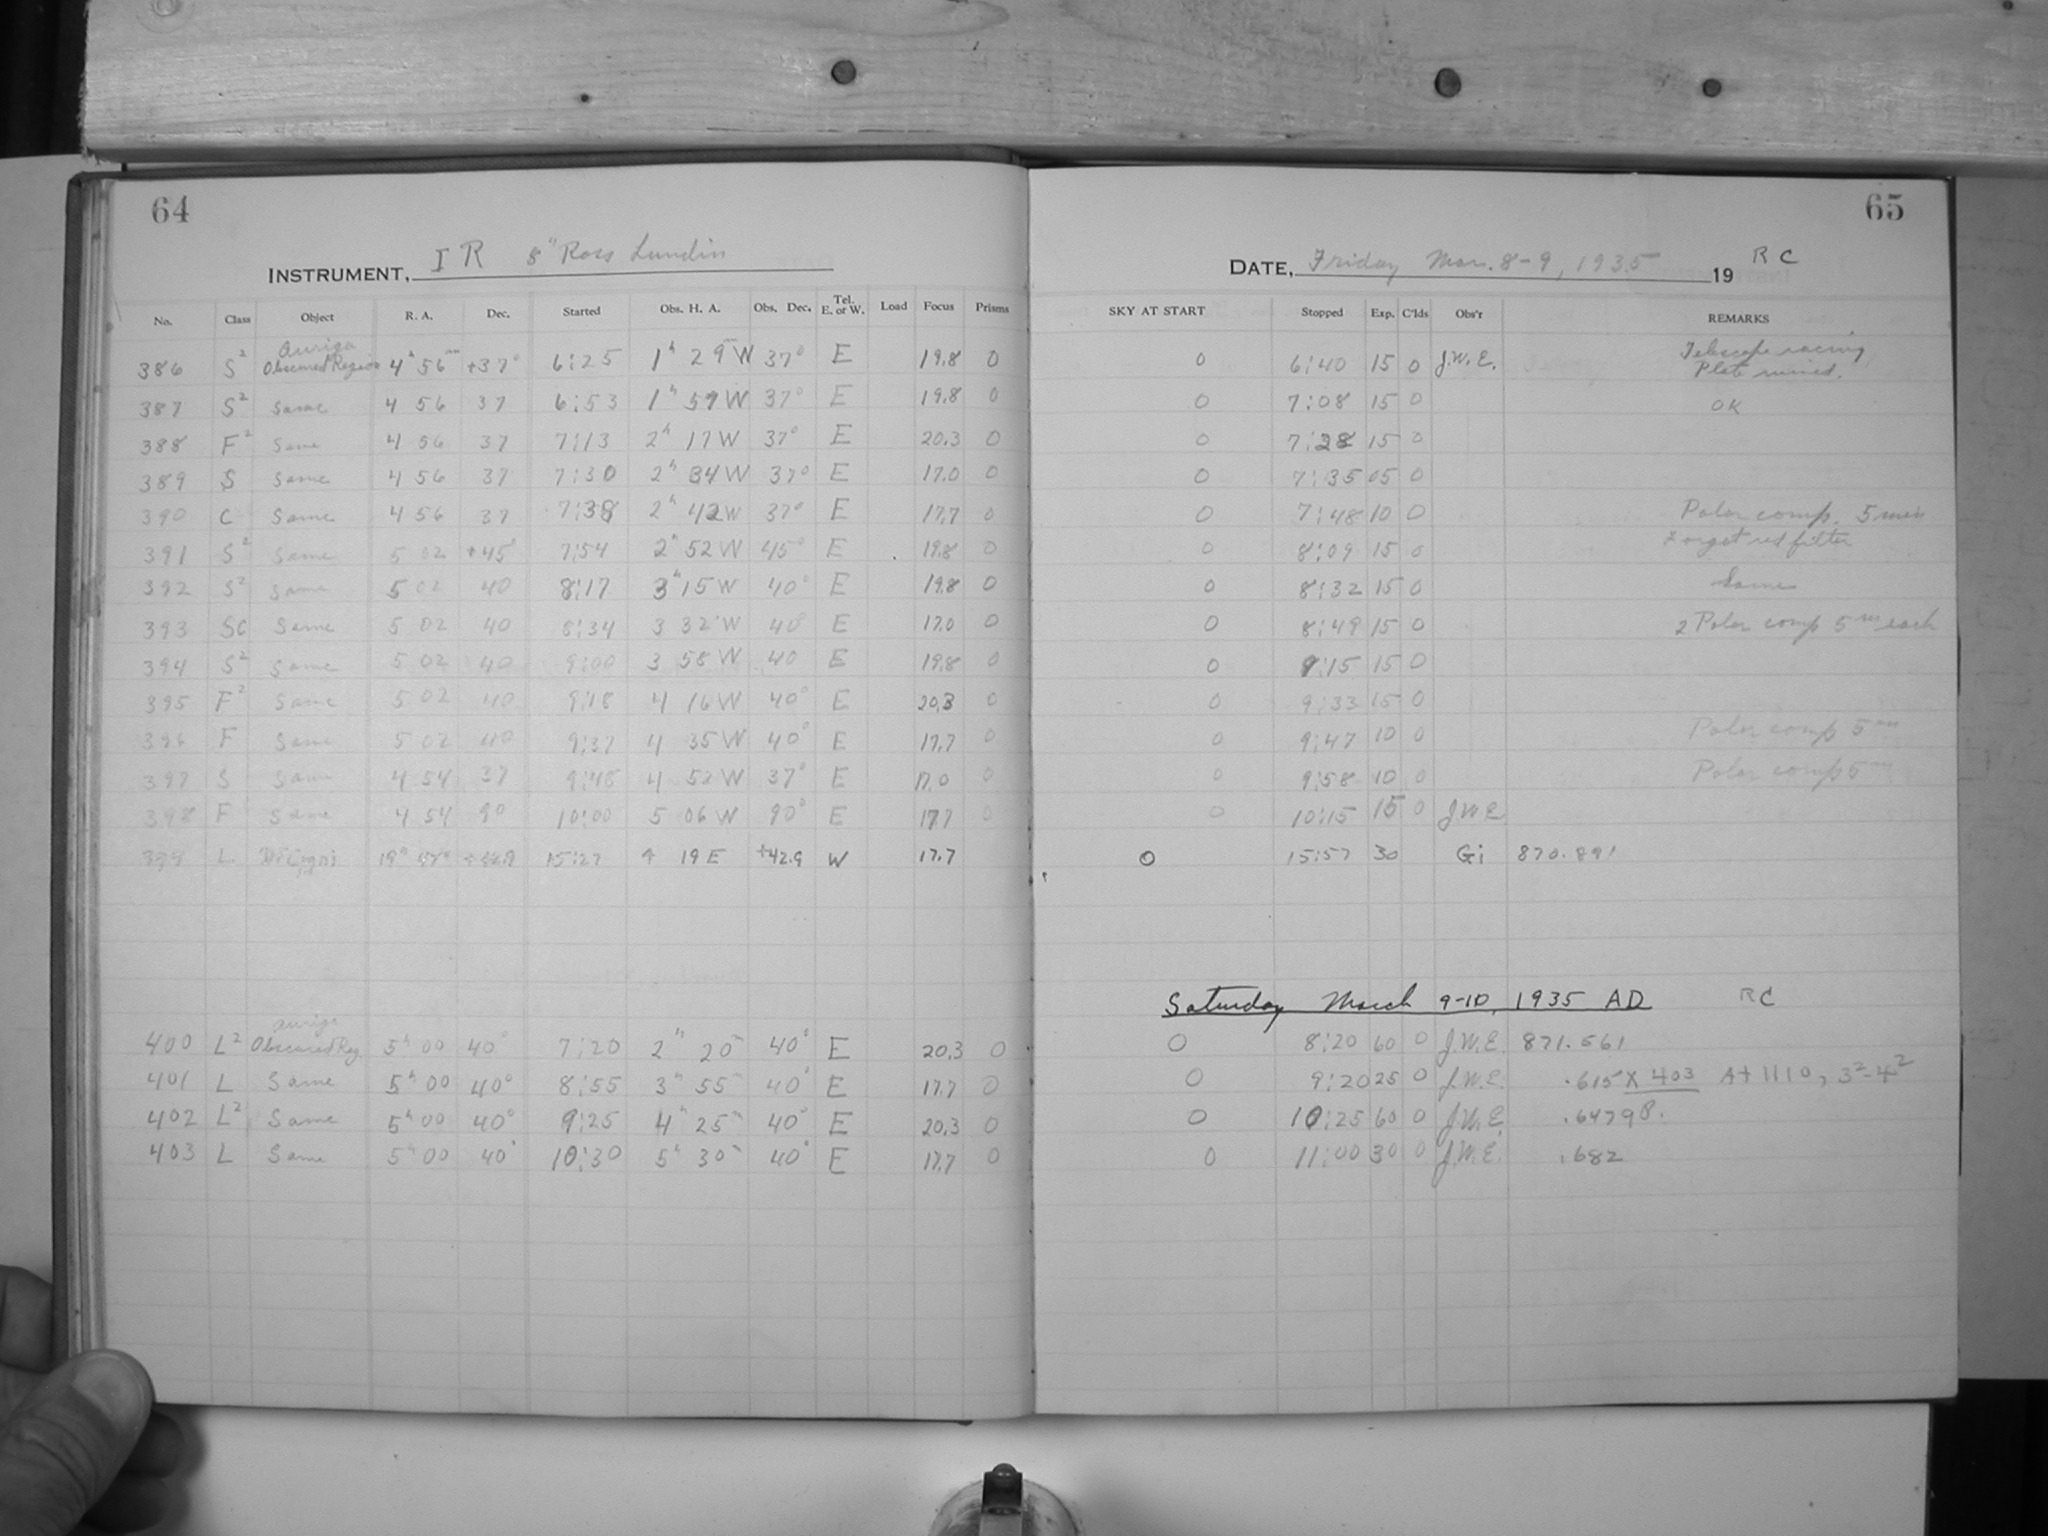 64
INSTRUMENT, I R 8" Ross Lundin
No. Class Object R. A. Dec. Started Obs. H. A. Obs. Dec. Tel. E. or W. Load Focus Prisms
386 S² Auriga Obscured Region 4ʰ 56ᵐ +37° 6:25 1ʰ 29ᵐ W 37° E 19.8 0
387 S² Same 4 56 37 6:53 1ʰ 57 W 37° E 19.8 0
388 F² Same 4 56 37 7:13 2ʰ 17 W 37° E 20.3 0
389 S Same 4 56 37 7:30 2ʰ 34 W 37° E 17.0 0
390 C Same 4 56 37 7:38 2ʰ 42 W 37° E 17.7 0
391 S² Same 5 02 +45° 7:54 2ʰ 52 W 45° E 19.8 0
392 S² Same 5 02 40 8:17 3ʰ 15 W 40° E 19.8 0
393 SC Same 5 02 40 8:34 3 32 W 40 E 17.0 0
394 S² Same 5 02 40 9:00 3 58 W 40 E 19.8 0
395 F² Same 5 02 40 9:18 4 16 W 40° E 20.3 0
396 F Same 5 02 40 9:37 4 35 W 40° E 17.7 0
397 S Same 4 54 37 9:48 4 52 W 37° E 17.0 0
398 F Same 4 54 90 10:00 5 06 W 90° E 17.7 0
399 L 15:27 4 19 E +42.9 W 17.7
400 L² Auriga Obscured Reg. 5ʰ 00 40° 7:20 2ʰ 20ᵐ 40° E 20.3 0
401 L Same 5ʰ 00 40° 8:55 3ʰ 55ᵐ 40° E 17.7 0
402 L² Same 5ʰ 00 40° 9:25 4ʰ 25ᵐ 40° E 20.3 0
403 L Same 5ʰ 00 40° 10:30 5ʰ 30ᵐ 40° E 17.7 0
65
DATE, Friday Mar. 8-9, 1935 19 R C
SKY AT START Stopped Exp. C'lds Obs'r REMARKS
0 6:40 15 0 J.W.E. Telescope racing Plate ruined.
0 7:08 15 0 OK
0 7:28 15 0
0 7:35 05 0
0 7:48 10 0 Polar comp. 5 min
0 8:09 15 0 Forgot red filter
0 8:32 15 0 Same
0 8:49 15 0 2 Polar comp 5ᵐ each
0 9:15 15 0
0 9:33 15 0
0 9:47 10 0 Polar comp 5ᵐ
0 9:58 10 0 Polar comp 5ᵐ
0 10:15 15 0 J.W.E
0 15:57 30 Gi 870.891
Saturday March 9-10, 1935 AD RC
0 8:20 60 0 J.W.E. 871.561
0 9:20 25 0 J.W.E. .615 X 403 A+ 1110, 3²-4²
0 10:25 60 0 J.W.E. .64798.
0 11:00 30 0 J.W.E. .682